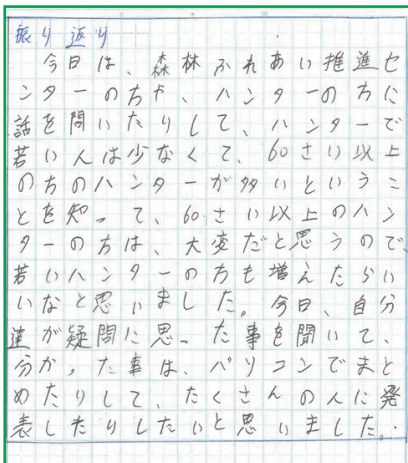 振り返り
今日は、森林ふれあい推進セ
ンターの方や、ハンターの方に
話を聞いたりして、ハンターで
若い人は少なくて、60さい以上
の方のハンターが多いというこ
とを知って、60さい以上のハン
ターの方は、大変だと思うので、
若いハンターの方も増えたらい
いなと思いました。今日、自分
達が疑問に思った事を聞いて、
分かった事は、パソコンでまと
めたりして、たくさんの人に発
表したりしたいと思いました。